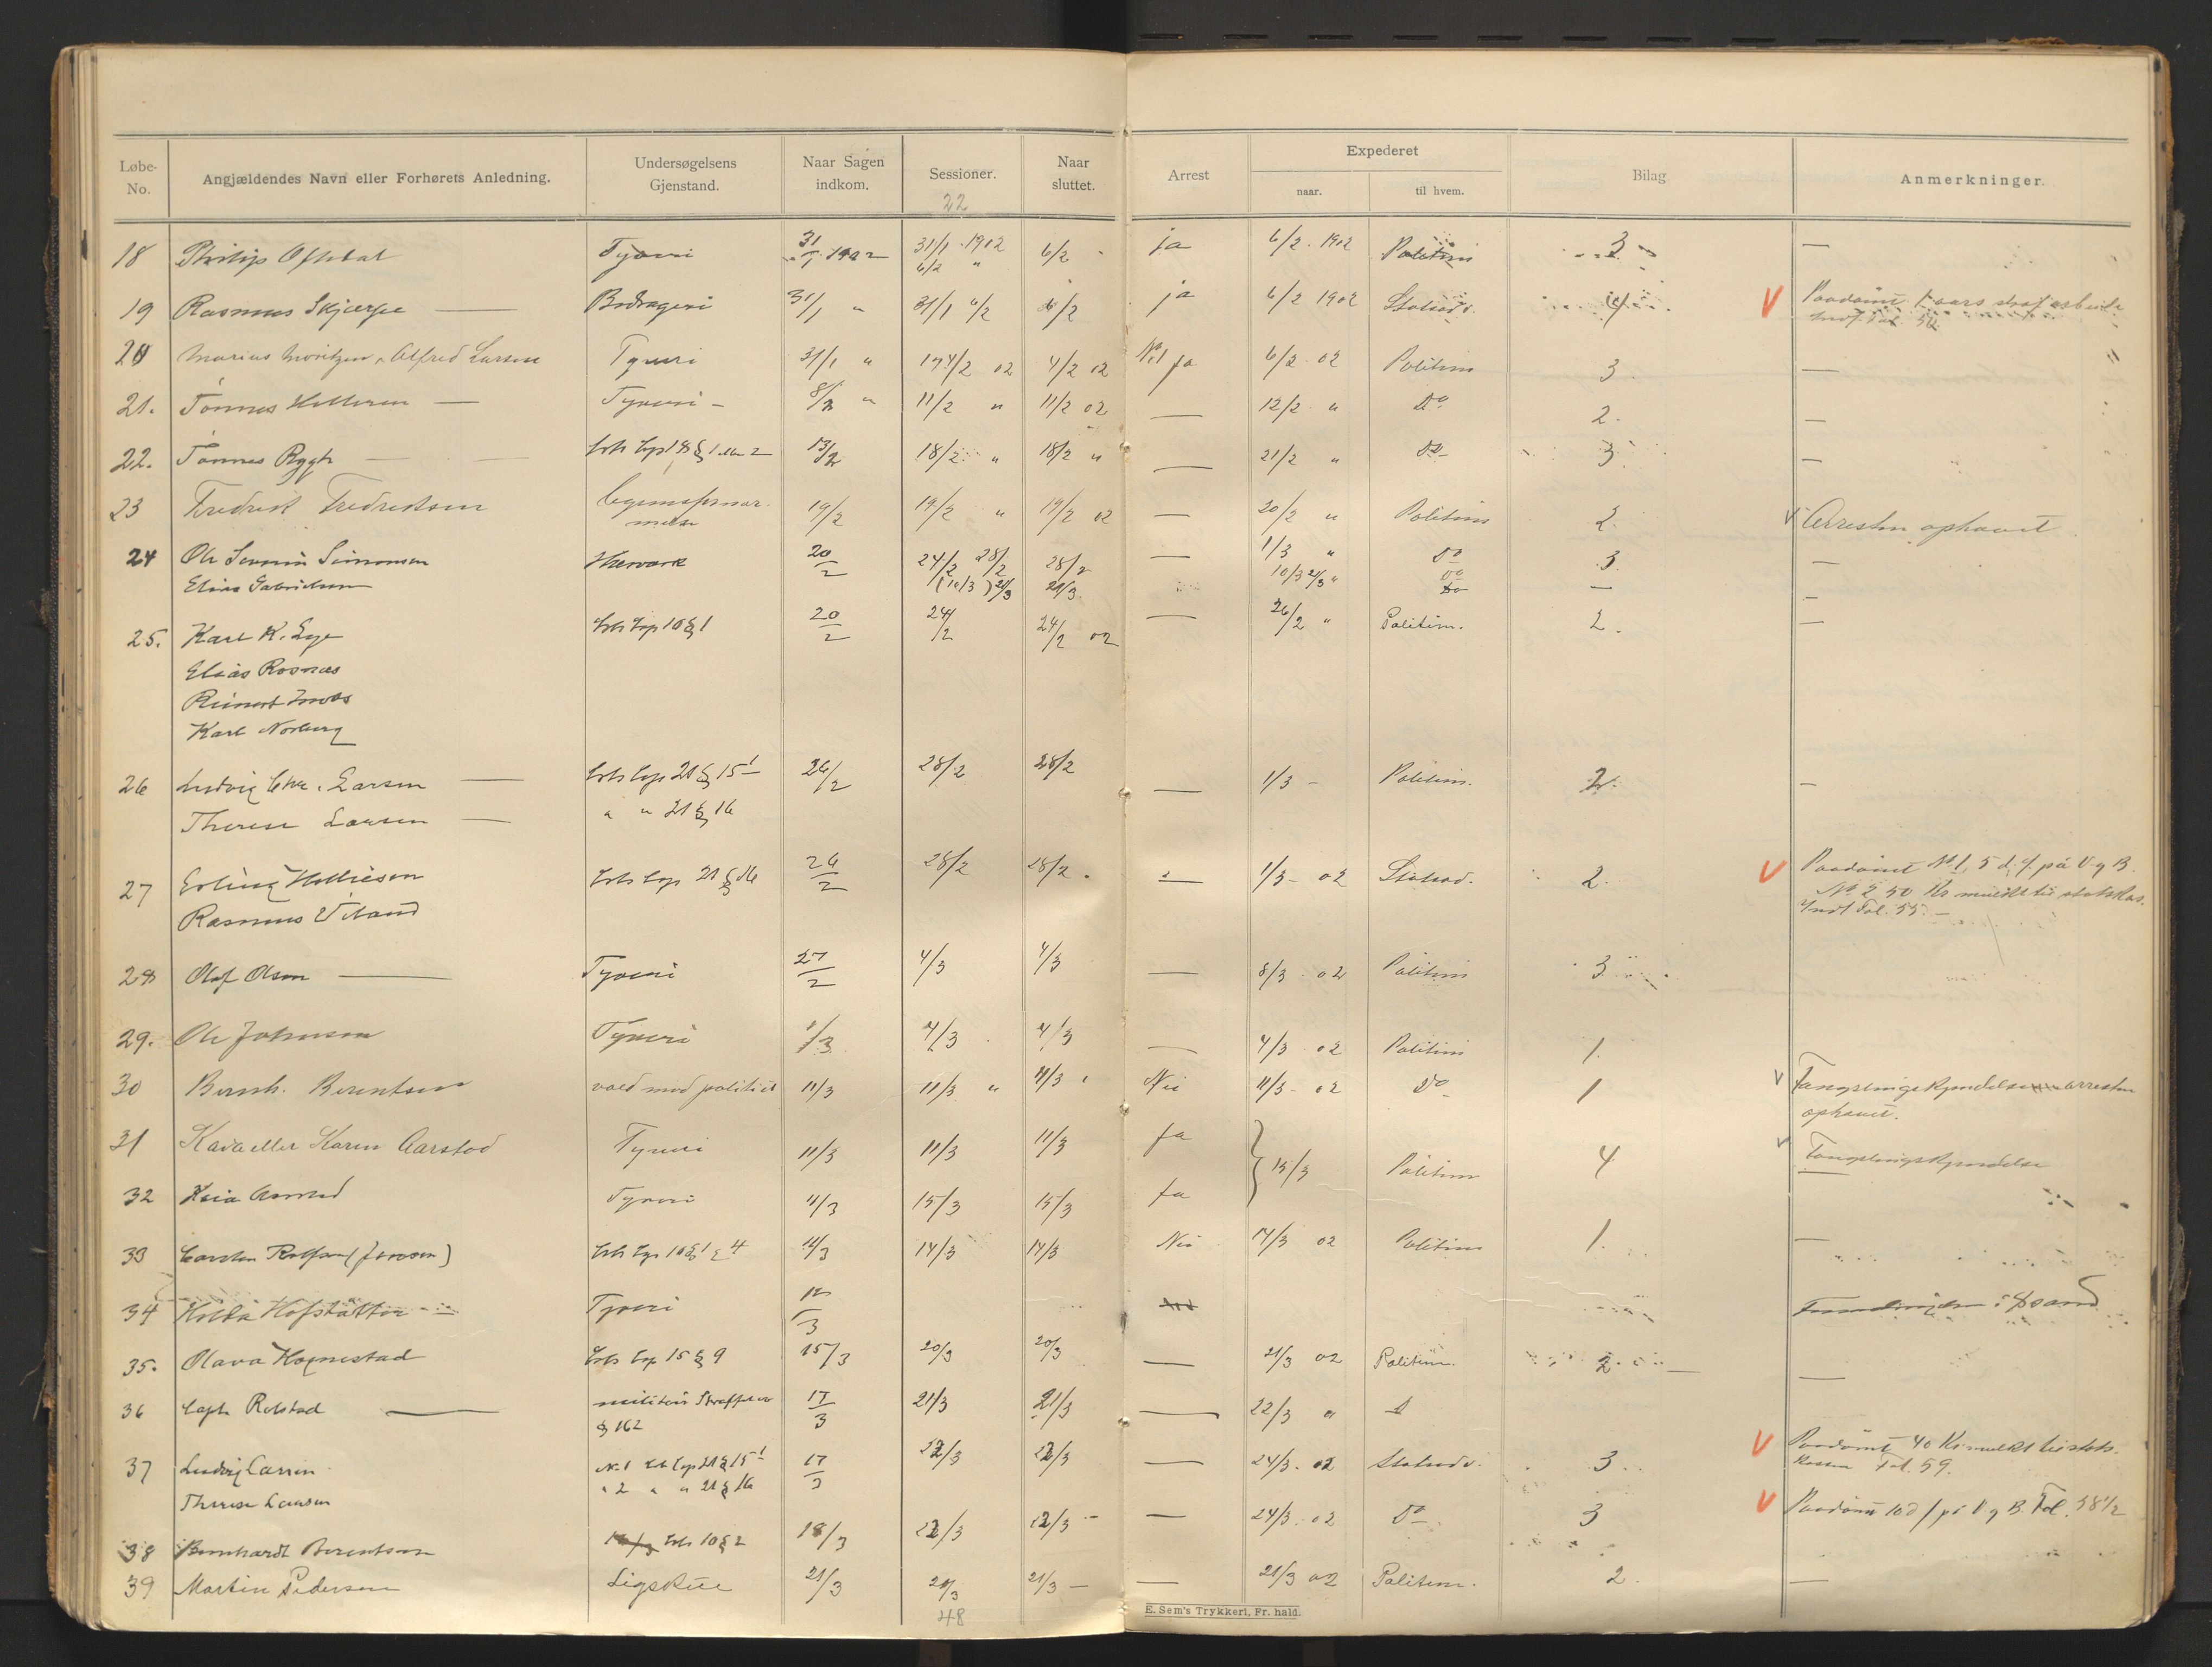 Løbe- No. Angjældendes Navn eller Forhørets Anledning. Undersøgelsens Gjenstand. Naar Sagen indkom. Sessioner. Naar sluttet. Arrest Expederet naar. til hvem. Bilag Anmerkninger.
22
18 Philip Tyveri 31/1 1902 31/1 1902 6/2 " 6/2 ja 6/2 1902 Politim 3 —
19 Rasmus Skjærpe — Bedrageri 31/1 " 31/1 6/2 6/2 ja 6/2 1902 Statsadv. 4 V Paadømt 1 aars strafarbeide
Indf. Fol. 54
20 Marius Moritzen, Alfred Larsen Tyveri 31/1 " 4/2 02 4/2 02 No 1 ja 6/2 02 Politim 3 —
21. Tønnes Helleren — Tyveri — 8/2 " 11/2 " 11/2 02 — 12/2 " Do 2. —
22. Tønnes Rygh — 13/2 18/2 " 18/2 " — 21/2 " Do 3 —
23 Fredrik Fredriksen Legemsfornær-
melse 19/2 19/2 " 19/2 02 — 20/2 " Politim 2. V Arresten ophævet
24 Ole Severin Simonsen Hærværk 20/2 24/2 28/2 28/2 — 1/3 " Do 3. —
Elias Gabrielsen (10/3) 21/3 21/3 10/3 21/3 " Do Do — —
25. Karl K. Lye Cap 10 § 1 20/2 24/2 24/2 02 — 26/2 " Politim. 2. —
Elias Rosnæs
Reinert
Karl Norberg
26 Ludvig Chr. Larsen — Cap 21 § 15 1 26/2 28/2 28/2 — 1/3 - Politim. 2. —
Therese Larsen — " " 21 § 16
27 Erling Helliesen Cap 21 § 16 26/2 28/2 28/2. — 1/3 - 02 Statsad. 2. V Paadømt No 1, 5 d. f. på V og B.
Rasmus No 2 50 Kr mulkt til statskas.
Indf Fol. 55. —
28 Olaf Olsen — Tyveri 27/2 4/3 4/3 — 8/3 02 Politim 3
29. Ole Johnsen Tyveri 1/3 4/3 4/3 — 4/3 02 Politim 1.
30 Bernh. Berentsen vold mod politiet 11/3 11/3 " 11/3 " Nei 11/3 - 02 Do 1 V Fængslingskjendelse arresten
ophævet.
31 eller Karen Aarstad Tyveri 11/3 11/3 11/3 Ja } 15/3 Politim 4 V Fængslingskjendelse
32 Tyveri 11/3 15/3 15/3 Ja
33 Carsten (Jonsson) Cap 10 § 1 4 11/3 14/3 14/3 Nei 14/3 02 Politim 1. —
34 Hofstätter — Tyveri 12/3
35. Olava Hognestad Cap 15 § 9 15/3 20/3 20/3 — 21/3 02 Politim. 2. —
36 Capt. Rolstad — militær Straffelov
§ 162 17/3 21/3 21/3 — 22/3 "
37 Ludvig Larsen No 1 Cap 21 § 15 1 17/3 22/3 22/3 — 24/3 - 02 Statsadv. 3 V Paadømt 40 Kr mulkt til stats-
kassen Fol. 59.
Therese Larsen " 2 " " 21 § 16
38 Bernhardt Berentsen 10 § 2 18/3 22/3 22/3 — — 24/3 - 02 Do 3 V Paadømt 10 d. f. på V og B. Fol. 58 1/2
39 Martin Pedersen Ligskue 21/3 21/3 21/3 — — 21/3 02 Politim. 2. —
48
E. Sem's Trykkeri, Fr. hald.